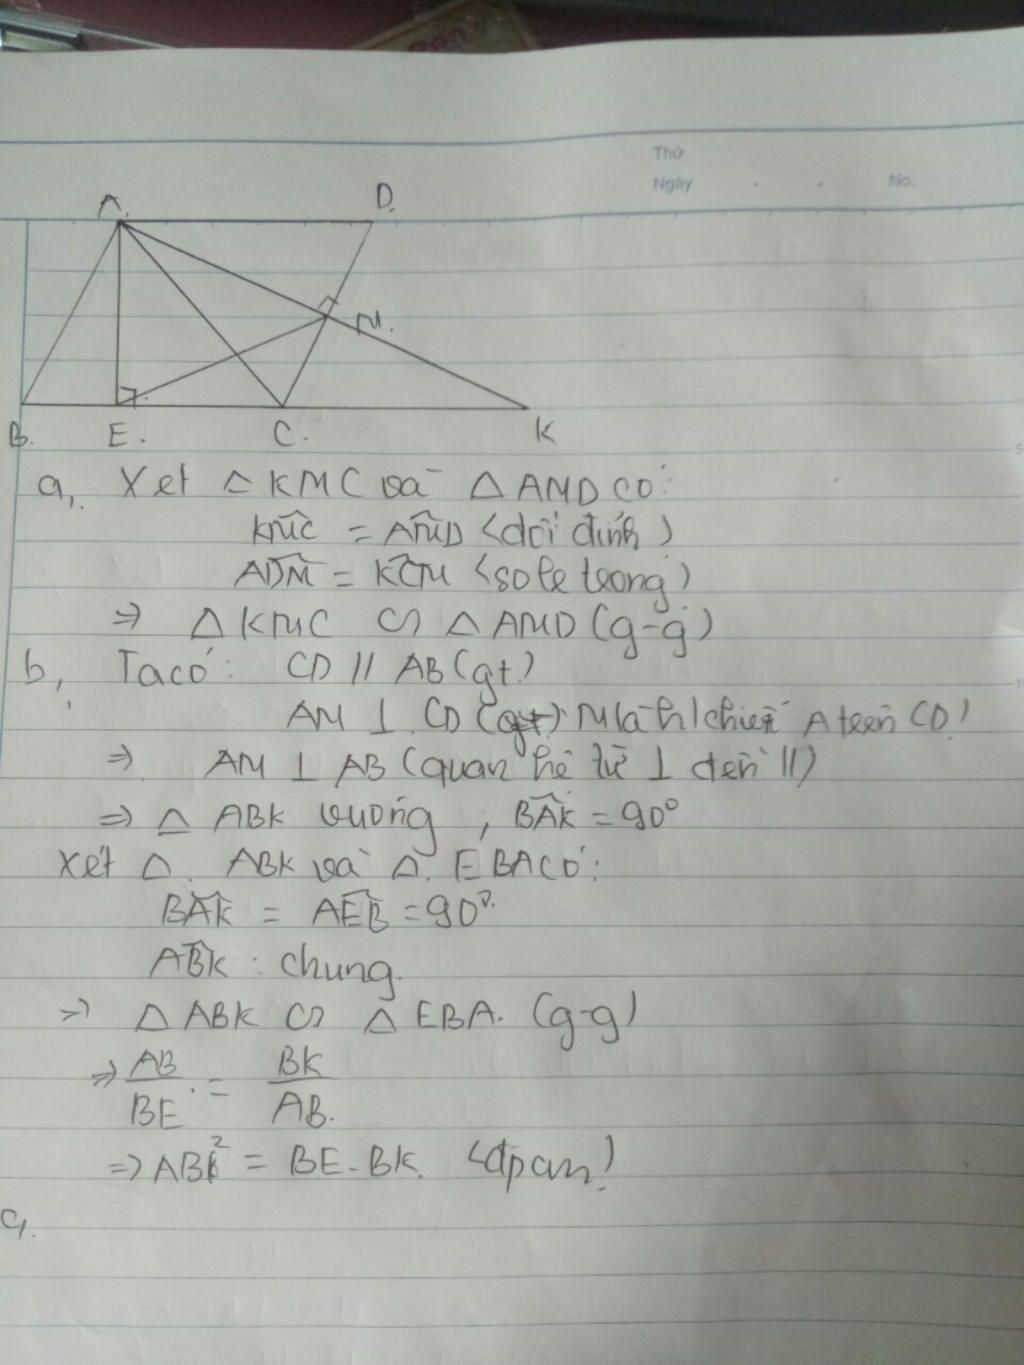 Thứ
Ngày . . No.
A. D.
M.
B. E. C. K
a, Xét △ KMC và △ AMD CÓ:
KMC = AMD (đối đỉnh)
ADM = KCM (so le trong)
⇒ △ KMC ∽ △ AMD (g-g)
b, Ta có: CD // AB (gt)
AM ⊥ CD ( M là h/chiếu A trên CD)
⇒ AM ⊥ AB (quan hệ từ ⊥ đến //)
⇒ △ ABK vuông, BAK = 90°
Xét △. ABK và △. EBA CÓ:
BAK = AEB = 90°.
ABK : chung.
⇒ △ ABK ∽ △ EBA. (g-g)
⇒ AB/BE = BK/AB.
⇒ AB² = BE.BK. (đpcm)
c,